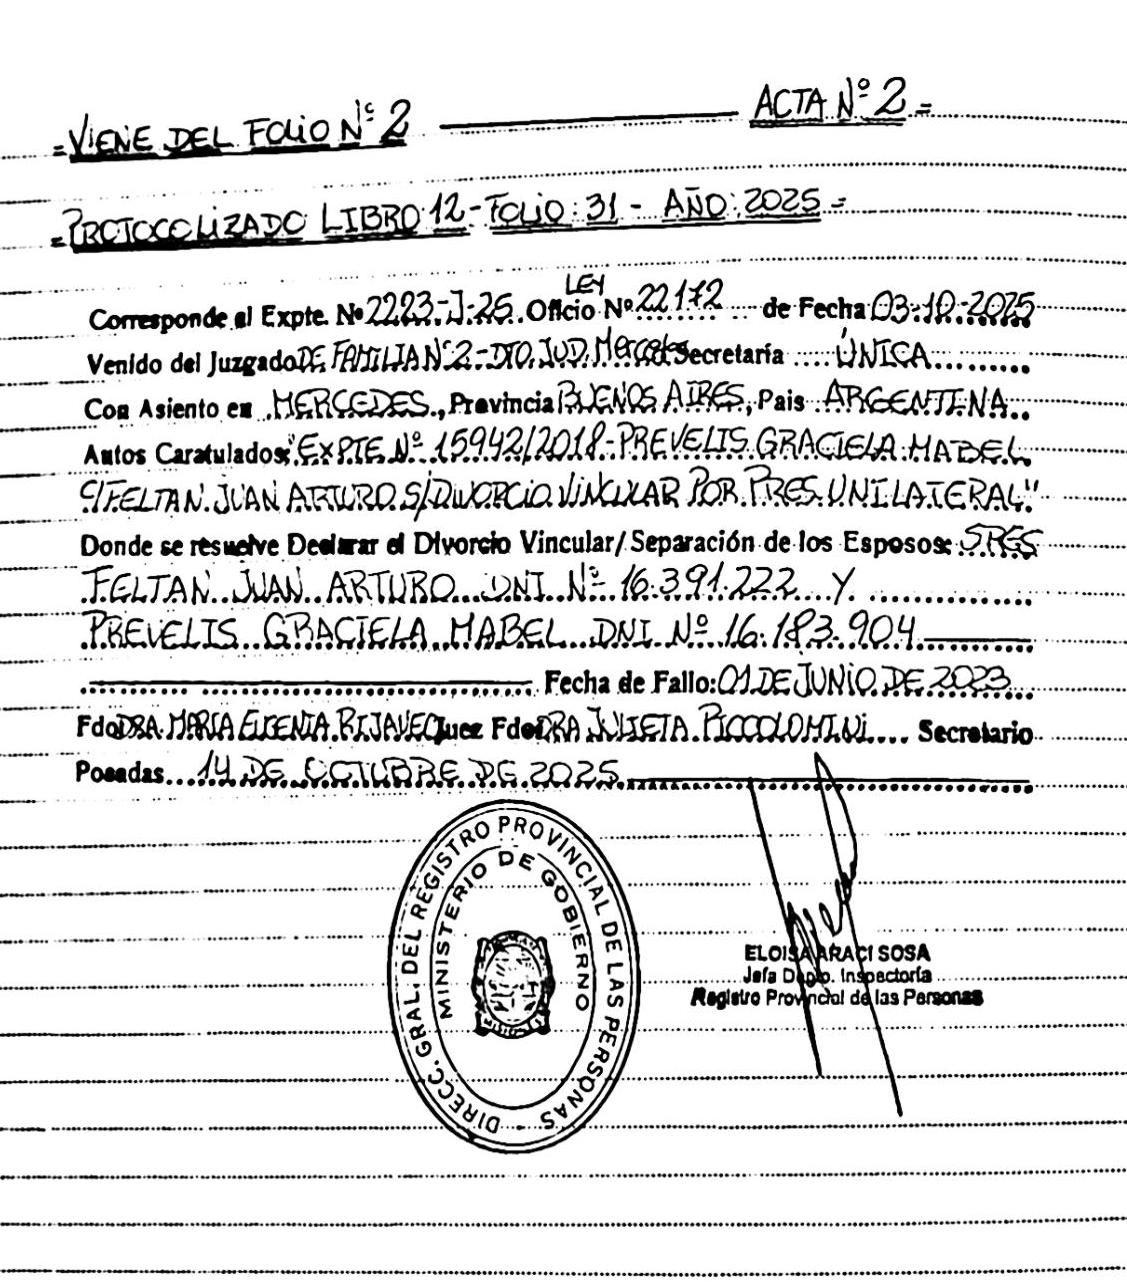 =VIENE DEL FOLIO Nº 2 ACTA Nº 2=
=PROTOCOLIZADO LIBRO 12-FOLIO: 31 - AÑO: 2025=
LEY
Corresponde al Expte. Nº 2223-J-25. Oficio Nº 22172 de Fecha 03-10-2025
Venido del Juzgado DE FAMILIA Nº2-DTO. JUD. Mercedes Secretaría ....ÚNICA.........
Con Asiento en .MERCEDES., Provincia BUENOS AIRES, Pais .ARGENTINA..
Autos Caratulados: "EXPTE Nº 15942/2018-PREVELIS GRACIELA MABEL
C/FELTAN JUAN ARTURO S/DIVORCIO VINCULAR POR PRES. UNILATERAL"
Donde se resuelve Declarar el Divorcio Vincular/Separación de los Esposos: SRES
FELTAN JUAN ARTURO DNI Nº 16.391.222 Y
PREVELIS GRACIELA MABEL DNI Nº 16.183.904
Fecha de Fallo: 01 DE JUNIO DE 2023
Fdo DRA. MARIA EUGENIA RIJAVEC Juez Fdo DRA JULIETA PICCOLOMINI.... Secretario
Posadas...14 DE OCTUBRE DE 2025
DIRECC. GRAL. DEL REGISTRO PROVINCIAL DE LAS PERSONAS -
MINISTERIO DE GOBIERNO
ELOISA ARACI SOSA
Jefa Depto. Inspectoría
Registro Provincial de las Personas